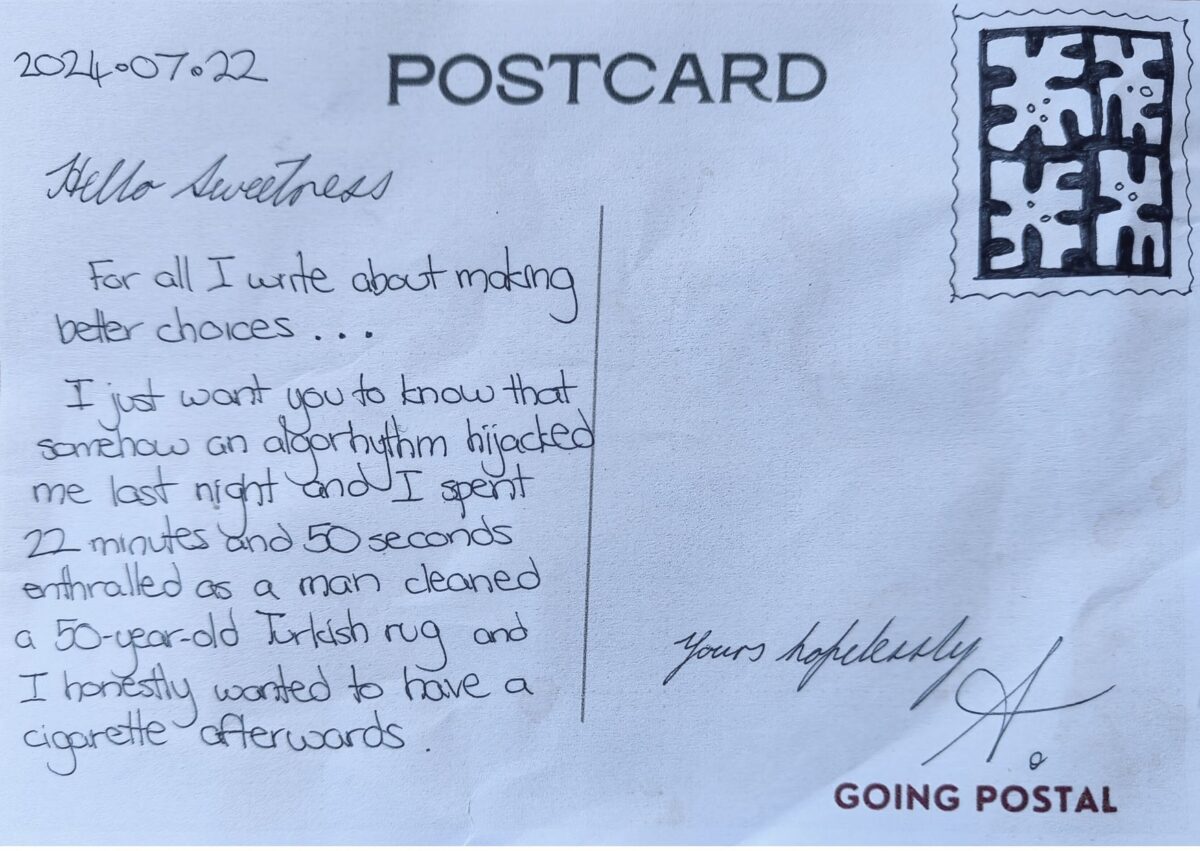 2024.07.22
POSTCARD
Hello Sweetness
For all I write about making
better choices...
I just want you to know that
somehow an algorhythm hijacked
me last night and I spent
22 minutes and 50 seconds
enthralled as a man cleaned
a 50-year-old Turkish rug and
I honestly wanted to have a
cigarette afterwards.
Yours hopelessly
A.
GOING POSTAL